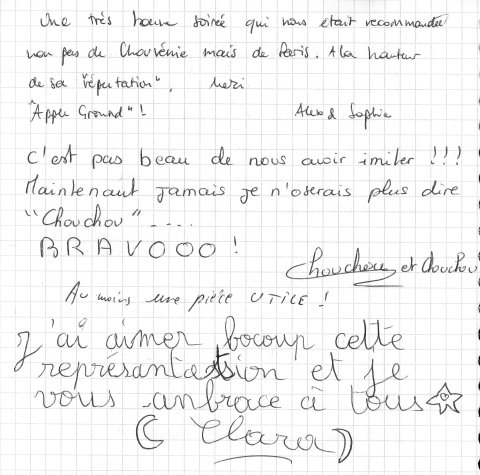 Une très bonne soirée qui nous était recommandée
non pas de Chouvénie mais de Paris. A la hauteur
de sa "réputation". Merci
"Apple Ground"! Alex & Sophie
C'est pas beau de nous avoir imiter !!!
Maintenant jamais je n'oserais plus dire
"Chouchou" ....
BRAVOOO !
Chouchou et Chouchou
Au moins une pièce UTILE !
J'ai aimer bocoup cette
représantatsion et je
vous anbrace à tous
Clara